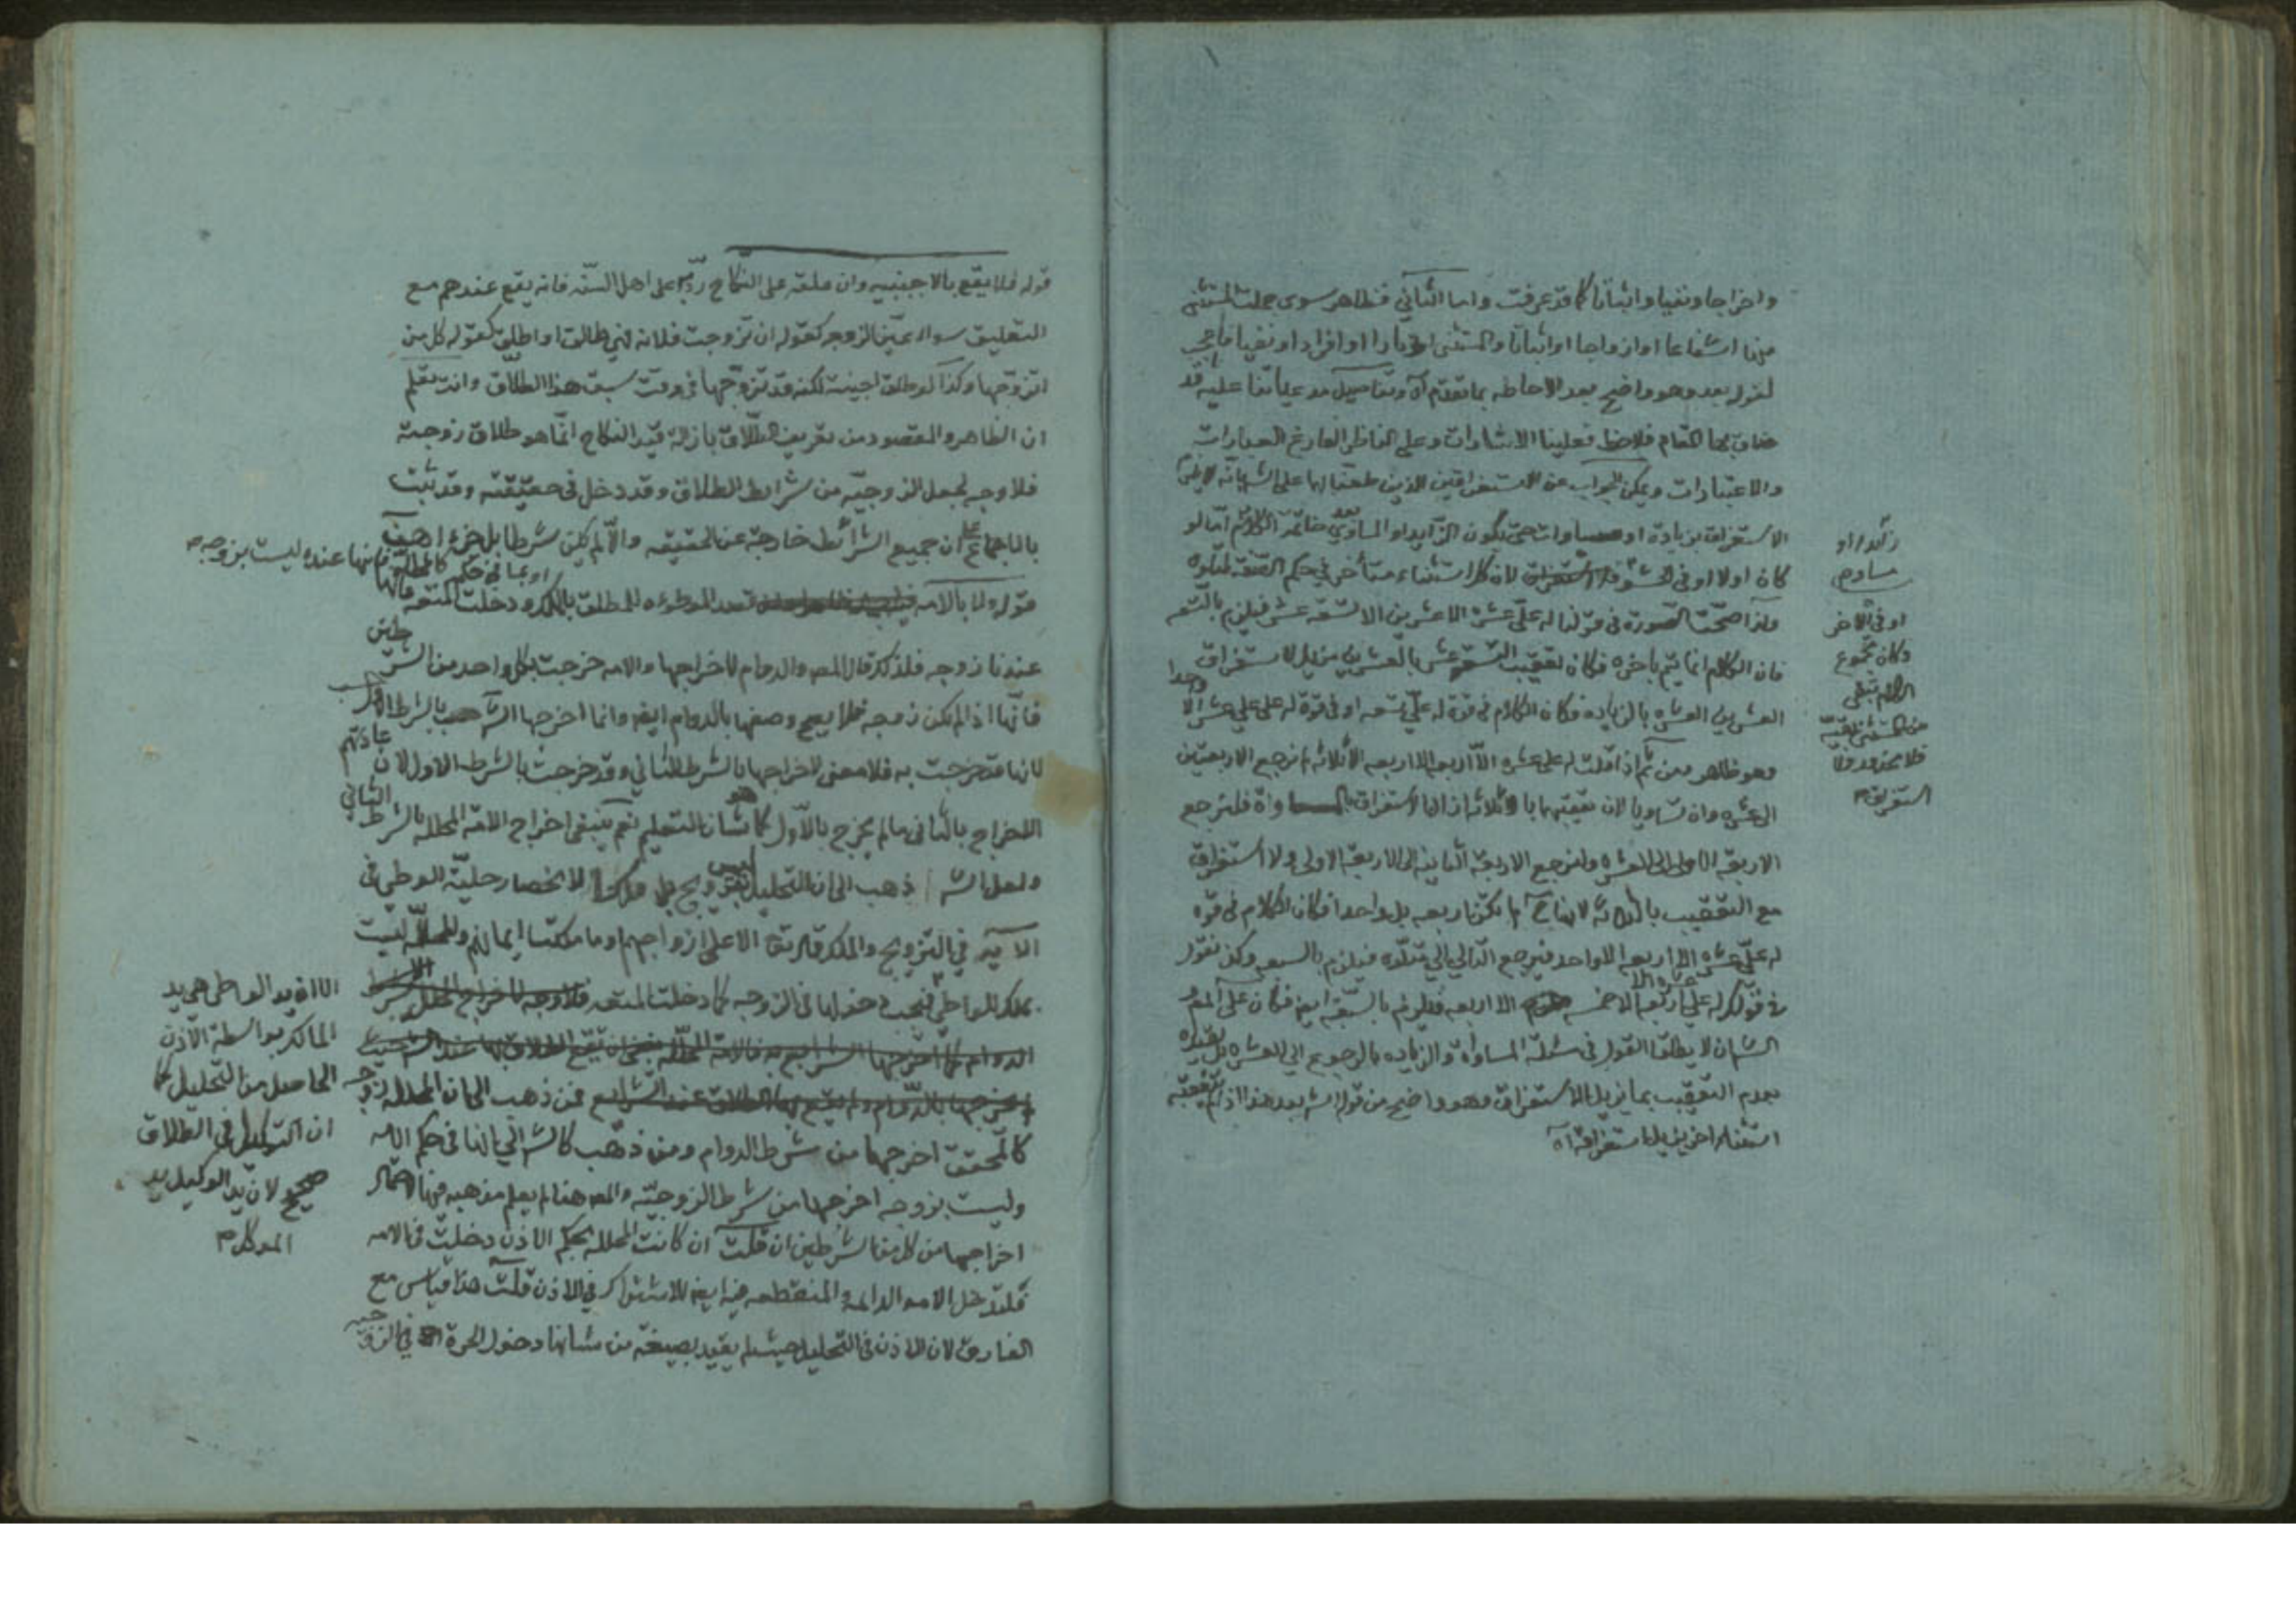 واخراجا ونفيا واثباتا كما قد عرفت واما الثاني فظاهر سوى جملت المستثنى
منها اشفاعا او ازواجا او اثباتا والمستثنى اوتارا او افراد او نفيا
لنزله بعد وهو واضح بعد الاحاطه بما تقدم آه وتفاصيل مدعياتنا عليه قد
ضاق بها المقام فلاحظ فعلينا الاشارات وعلى الناظر الفارغ العبارات
والاعتبارات ويمكن الجواب عن الاستغراقين الذين طعنا بها على الش بانه
الاستغراق بزيادة او مساوات حتى يكون الزايد او المساوي بعد خاتمة الكلام اما لو
كان اولا او في الحشو فلا استغراق لان كل استثناء متأخر في حكم الصفه لمتلوه
ولذا صحت الصورة في قولنا له علي عشره الا عشرين الا تسعة عشر فيلزم بالتسعه
فان الكلام انما يتم باخره فكان تعقيب التسعة عشر بالعشرين مزيل لاستغراق
العشرين العشره بالزياده فكان الكلام في قوة له علي تسعه او في قوة له علي عشرة الا واحدا
وهو ظاهر ومن ثم اذا قلت له علي عشره الا اربعه الا اربعه الا ثلاثه لم نرجع الاربعتين
الى عشره وان تساويا لان تعقبهما بالثلاثه ازال الاستغراق بالمساواة فلترجع
الاربعة الاولى الى العشره ولنرجع الاربعة الثانيه الى الاربعة الاولى ولا استغراق
مع التعقيب بالثلاثه لانها ح لم تكن اربعه بل واحدا فكان الكلام في قوه
له علي عشره الا اربعه الا واحد فيرجع التالي الى متلوه فيلزم بالسبعه وكذا نقول
في قولك له علي عشره الا اربعة الا خمسه الا اربعه فيلزم بالسبعة ايضا فكان على المص
الش ان لا يطلق القول في مسئلة المساواة والزياده بالرجوع الى العشره بل يقيده
بعدم التعقيب بما يزيل الاستغراق وهو واضح من قول الش بعد هذا اذا لم يتعقبه
استثناء اخر يزيل استغراقه آه
زائدا او
مساو م
او في الآخر
وكان مجموع
الكلام تبقى
من المستثنى بقيه
فلا محذور ولا
استغراق م
قوله فلا يقع بالاجنبيه وان علقه على النكاح رد به على اهل السنه فانه يقع عندهم مع
التعليق سواء عين الزوجه كقوله ان تزوجت فلانه فهي طالق او اطلق كقوله كل من
اتزوجها وكذا لو طلق اجنبية لكنه قد تزوجها في وقت سبق هذا الطلاق وانت تعلم
ان الظاهر والمقصود من تعريف الطلاق بازالة قيد النكاح انما هو طلاق زوجته
فلا وجه لجعل الزوجيه من شرايط الطلاق وقد دخل في حقيقته وقد ثبت
بالاجماع على ان جميع الشرائط خارجة عن الحقيقه والا لم يكن شرطا بل جزء
او بما في حكم كالمطلقه فانها عنده ليست بزوجه م
قوله ولا بالامه تعد الموطوءه للمطلق بالملك ودخلت المتعه فانها
عندنا زوجه فلذلك قال المص والدوام لاخراجها والامه خرجت بكل واحد من الشرطين
فانها اذا لم تكن زوجه فلا يصح وصفها بالدوام ايضا وانما اخرجها الش بالشرط الاول
لانها قد خرجت به فلا معنى لاخراجها بالشرط الثاني وقد خرجت بالشرط الاول لان عادتهم
الاخراج بالثاني ما لم يخرج بالاول كما هو شان التعليم نعم ينبغي اخراج الامة المحلله بالشرط الثاني
ولعل الش ذهب الى ان التحليل ليس بتزويج بل ملك لانحصار حلية الوطي في
الآيه في التزويج والملك قال تعالى الا على ازواجهم او ما ملكت ايمانهم والمحللة ليست
بملك للواطي فيجب دخولها في الزوجه كما دخلت المتعه فلا وجه لاخراج المحلل
الدوام كما اخرجها الشرايع به فالامة المحللة ينبغي ان يقع الطلاق بها عند الش حيث
لم يخرجها بالدوام ولم يقع بها الطلاق عند الشرايع فمن ذهب الى ان المحلله زوجه
كالمحقق اخرجها من شرط الدوام ومن ذهب كالش الى انها في حكم الامه
وليست بزوجه اخرجها من شرط الزوجيه والمص هنا لم يعلم مذهبه فيها لاحتمال
اخراجها من كل من الشرطين ان قلت ان كانت المحلله بحكم الاذن دخلت في الامه
فلتدخل الامه الدائمه والمنقطعه فيه ايضا للاشتراك في الاذن قلت هذا قياس مع
الفارق لان الاذن في التحليل حيث لم يقيد بصيغة من شانها دخول الحرة في الزوجيه
الا ان يد الواطي هي يد
المالك بواسطة الاذن
الحاصل من التحليل كما
ان التوكيل في الطلاق
صحيح لان يد الوكيل يد
الموكل م